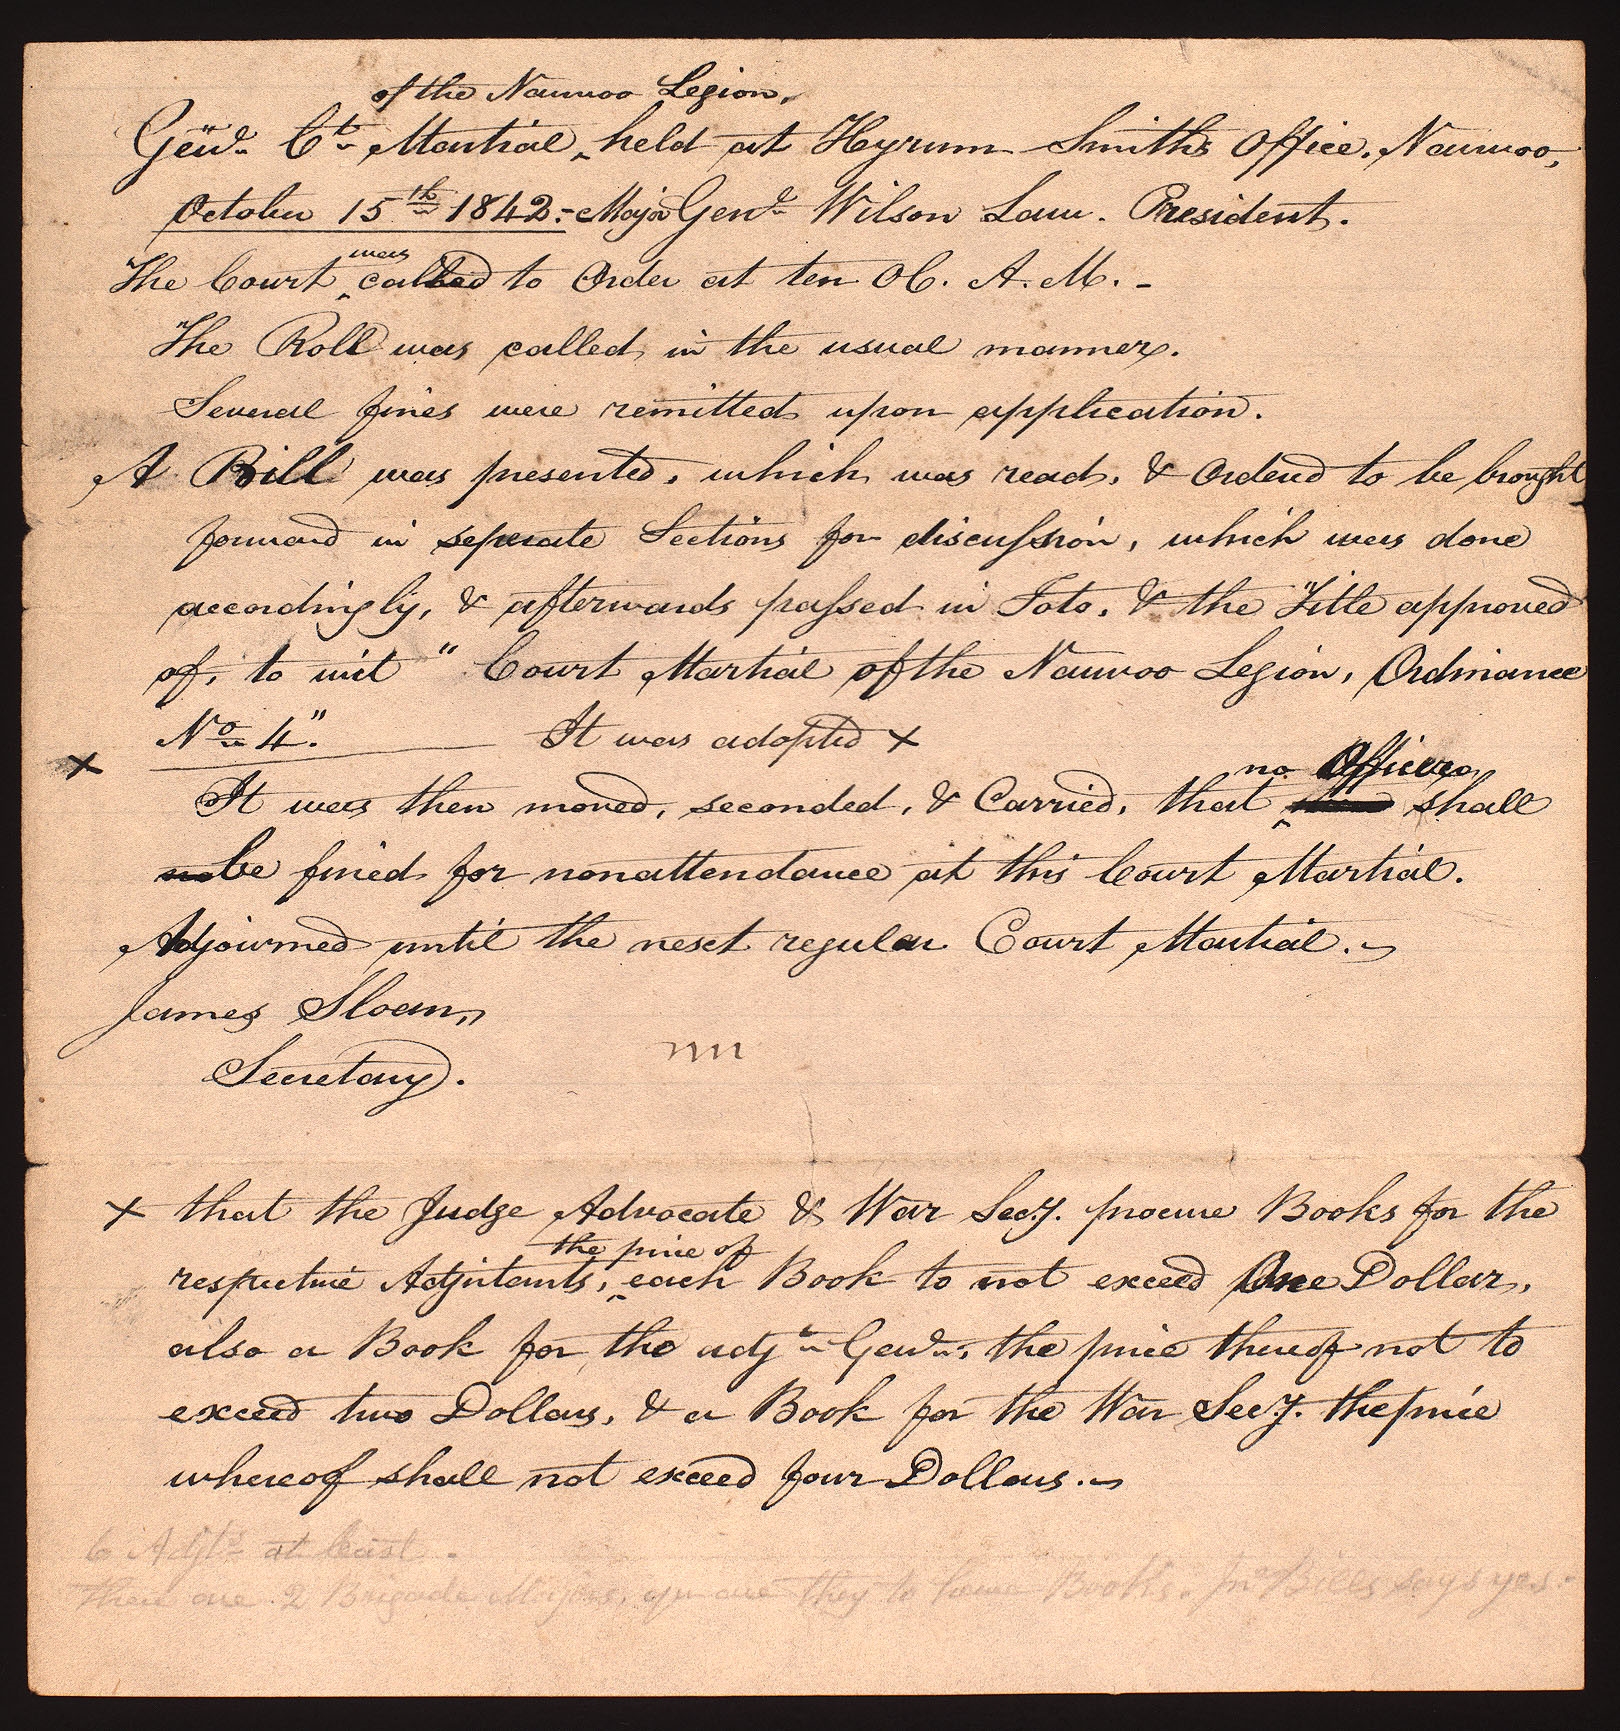 of the Nauvoo Legion,
Genl. Ct. Martial, held at Hyrum Smith's Office, Nauvoo,
October 15th 1842:- Major Genl. Wilson Law. President.
was
The Court called to Order at ten OC. A.M. -
The Roll was called in the usual manner.
Several fines were remitted upon application.
A Bill was presented, which was read, & Ordered to be brought
forward in seperate Sections for discussion, which was done
accordingly, & afterwards passed in Toto, & the Title approved
of, to wit "Court Martial of the Nauvoo Legion, Ordinance
No. 4." It was adopted X
no Officers
X
It was then moved, seconded, & Carried, that shall
be fined for nonattendance at this Court Martial.
Adjourned until the next regular Court Martial.
James Sloan,
Secretary.
X that the Judge Advocate & War Secy. procure Books for the
the price of
respective Adjutants, each Book to not exceed One Dollar,
also a Book for the adjt. Genl., the price thereof not to
exceed two Dollars, & a Book for the War Secy. the price
whereof shall not exceed four Dollars.
6 Adjts. at least.
there are 2 Brigade Majors, are they to have Books. Bills says yes.